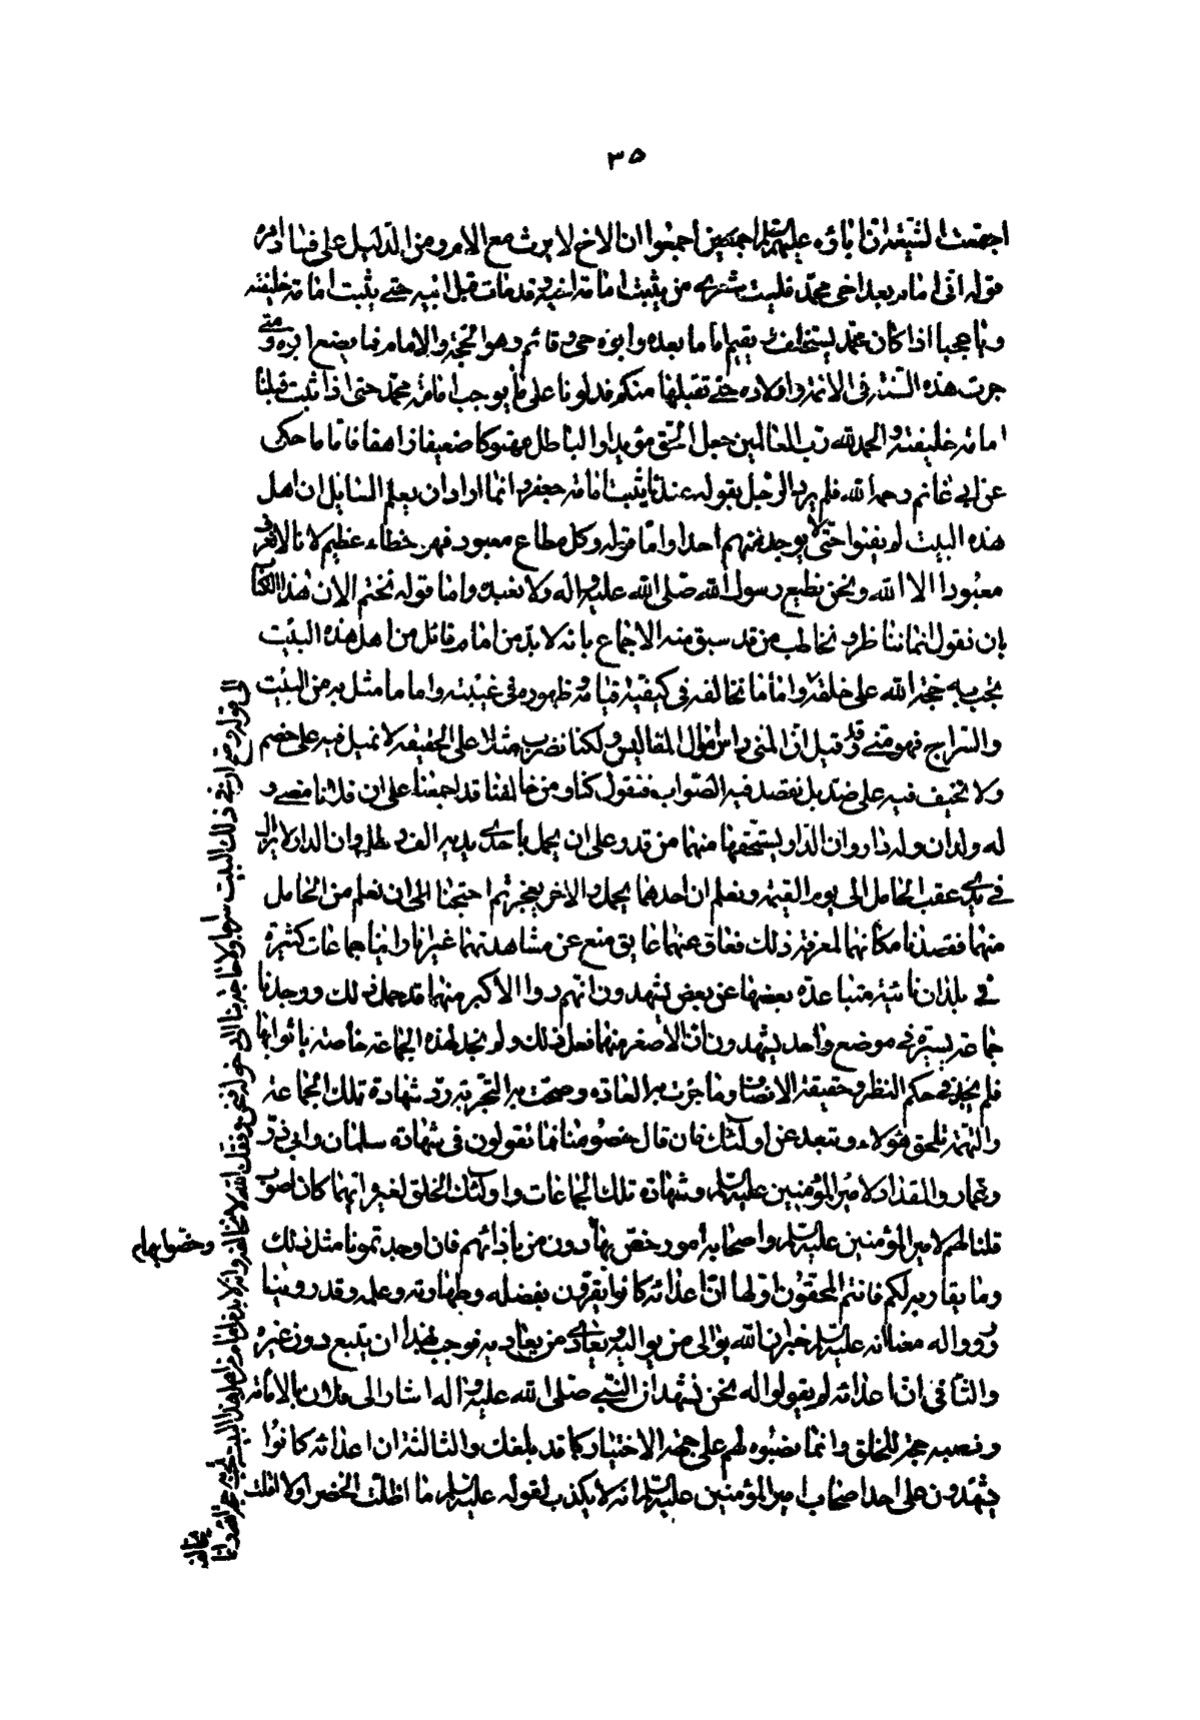 ٣٥
اجتمعت الشيعة ان اباؤه عليهم السلم اجمعين اجمعوا ان الاخ لا يرث مع الام ومن الدليل على فساد امره
قوله اني امام بعد اخي محمد فليت شعري متى يثبت امامة اخيه وقد مات قبل ابيه حتى يثبت امامة خليفته
ويا عجبا اذا كان محمد يستخلف ويقيم اماما بعده وابوه حي قائم وهو الحجة والامام فما يصنع ابوه ومتى
جرت هذه السنة في الائمة واولاده حتى نقبلها منكم فدلونا على ما يوجب امامة محمد حتى اذا ثبت قبلنا
امامة خليفته والحمد لله رب العالمين جعل الحق مؤيدا والباطل مهتوكا ضعيفا زاهقا فاما ما حكى
عن ابي غانم رحمه الله فلم يرد الرجل بقوله عندنا يثبت امامة جعفر وانما اراد ان يعلم السايل ان اهل
هذه البيت لم يفنوا حتى لا يوجد منهم احدا واما قوله وكل مطاع معبود فهو خطاء عظيم لانا لا نعرف
معبودا الا الله ونحن نطيع رسول الله صلى الله عليه واله ولا نعبده واما قوله نختم الان هذا الكتاب
بان نقول انما نناظر ونخاطب من قد سبق منه الاجماع بانه لا بد من امام قائل من اهل هذه البيت
يجب به حجة الله على خلقه واما ما نخالفه في كيفية قيامه وظهوره في غيبته واما ما مثل به من البيت
والسراج فهو منى وقد قيل ان المنى راس اموال المفاليس ولكنا نضرب مثلا على الحقيقة لا نميل فيه على خصم
ولا نحيف فيه على ضد بل نقصد فيه الصواب فنقول كنا ومن خالفنا قد اجمعنا على ان فلانا مضى و
له ولدان وله دار وان الدار يستحقها منهما من قدر على ان يحمل باحدى يديه الف رطل وان الدار لا يزال
في يدي عقب الحامل الى يوم القيمة ونعلم ان احدهما يحمل والاخر يعجز ثم احتجنا الى ان نعلم من الحامل
منهما فقصدنا مكانهما لمعرفة ذلك فعاق عنهما عايق منع عن مشاهدتهما غير انا راينا جماعات كثيرة
في بلدان نائية متباعدة بعضها عن بعض يشهدون انهم راوا الاكبر منهما قد حمل ذلك ووجدنا
جماعة يسيرة في موضع واحد يشهدون ان الاصغر منهما فعل ذلك ولم نجد لهذه الجماعة خاصة باتوا بها
فلم يجز في حكم النظر وحقيقة الانصاف وما جرت به العادة وصحت به التجربة رد شهادة تلك الجماعة
والتهمة تلحق هؤلاء وتبعد عن اولئك فان قال خصومنا فما تقولون في شهادة سلمان وابي ذر
وعمار والمقداد لامير المؤمنين عليه السلم وشهادة تلك الجماعات واولئك الخلق لغيره ايهما كان اصوب
قلنا لهم لامير المؤمنين عليه السلم واصحابه امور خص بها دون من بازائهم فان اوجدتمونا مثل ذلك
وخصوا بها هم
وما يقاربه لكم فانتم المحقون اولها ان اعدائه كانوا يقرون بفضله وطهارته وعلمه وقد روينا
ورووا له معنا انه عليه السلم خبر ان الله يوالي من يواليه ويعادي من يعاديه فوجب لهذا ان يتبع دون غيره
والثاني ان اعدائه لم يقولوا له نحن نشهد ان النبي صلى الله عليه واله اشار الى فلان بالامامة
ونصبه حجة للخلق وانما نصبوه لهم على جهة الاختيار كما قد بلغك والثالثة ان اعدائه كانوا
يشهدون على احد اصحاب امير المؤمنين عليه السلم انه لا يكذب لقوله عليه السلم ما اظلت الخضراء ولا اقلت